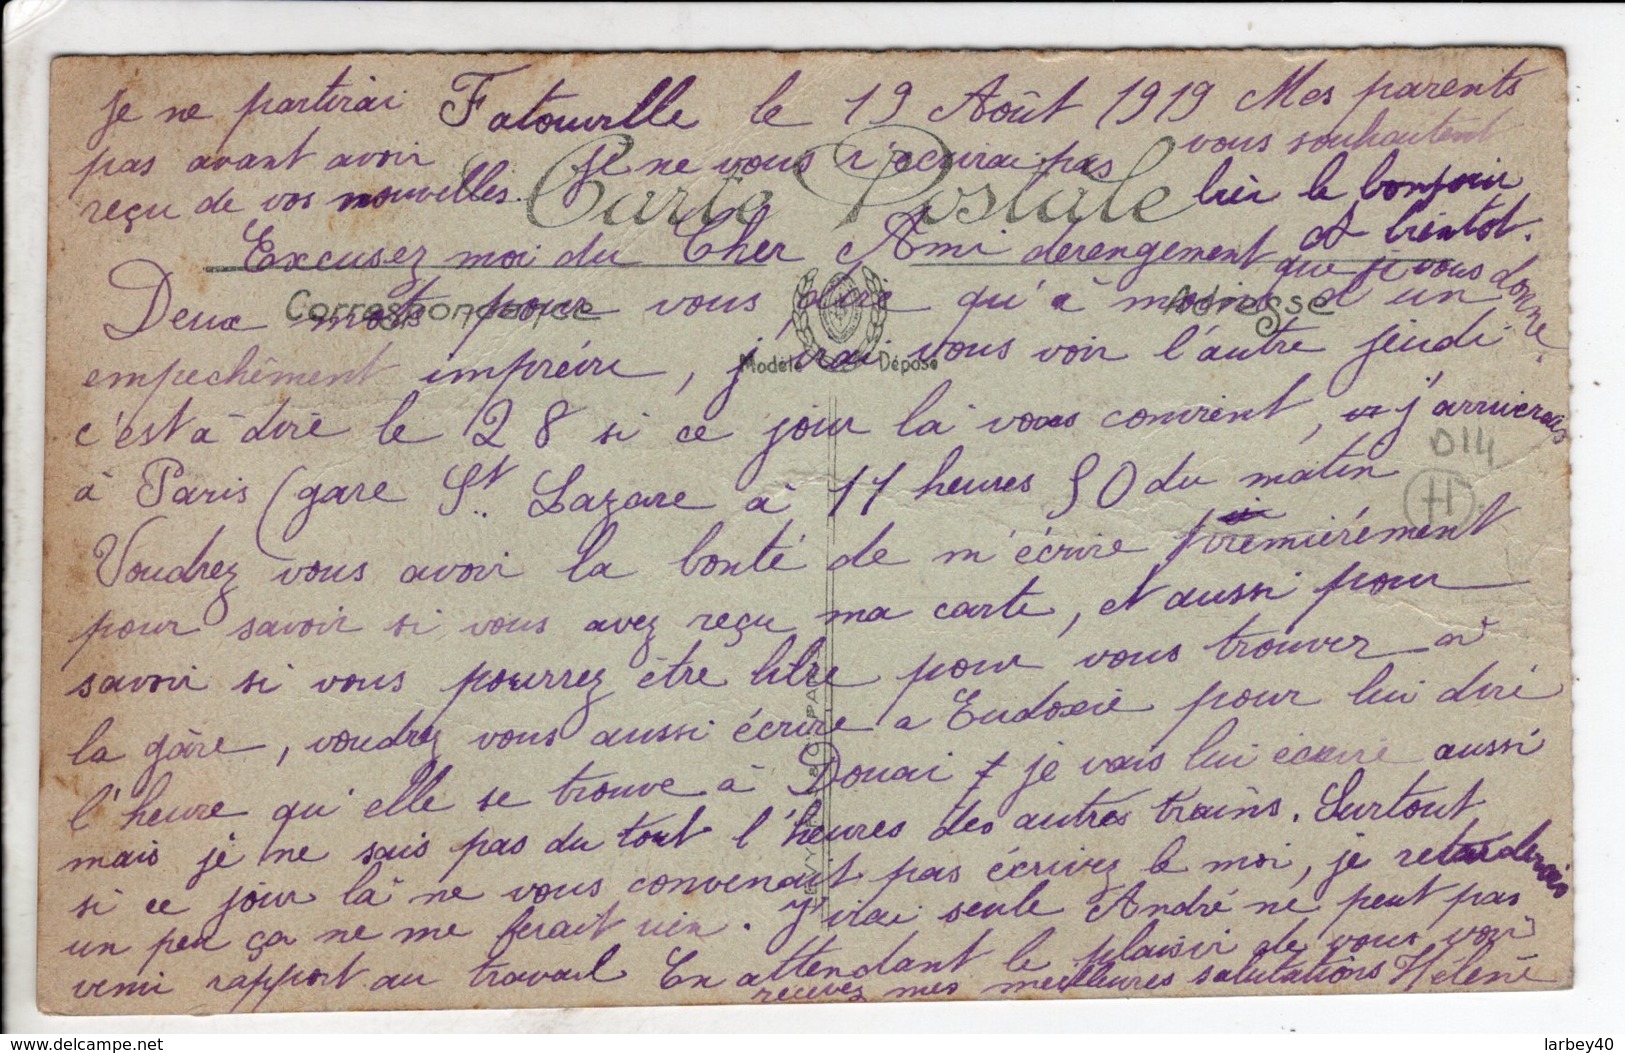 Fatouville le 19 Août 1919
Je ne partirai
pas avant avoir
reçu de vos nouvelles.
Je ne vous r'ecrirai pas
Mes parents
vous souhaitent
bien le bonjour
et bientôt.
Carte Postale
Excusez moi du derengement que je vous donne.
Cher Ami
Correspondance
Adresse
Modèle Déposé
Deux mots pour vous dire qu'à moins d'un
empechêment imprévu, j'irai vous voir l'autre jeudi
c'est à dire le 28 si ce jour là vous convient, j'arriverais
à Paris (gare St. Lazare à 11 heures 50 du matin
Voudrez vous avoir la bonté de m'écrire premièrement
pour savoir si vous avez reçu ma carte, et aussi pour
savoir si vous pourrez être libre pour vous trouver à
la gare, voudrez vous aussi écrire a Eudoxie pour lui dire
l'heure qu'elle se trouve à Douai je vais lui écrire aussi
mais je ne sais pas du tout l'heures des autres trains. Surtout
si ce jour là ne vous convenait pas écrivez le moi, je retarderais
un peu ça ne me ferait rien. J'irai seule André ne peut pas
venir rapport au travail En attendant le plaisir de vous voir
recevez mes meilleures salutations Hélène
D14
H
delcampe.net
larbey40